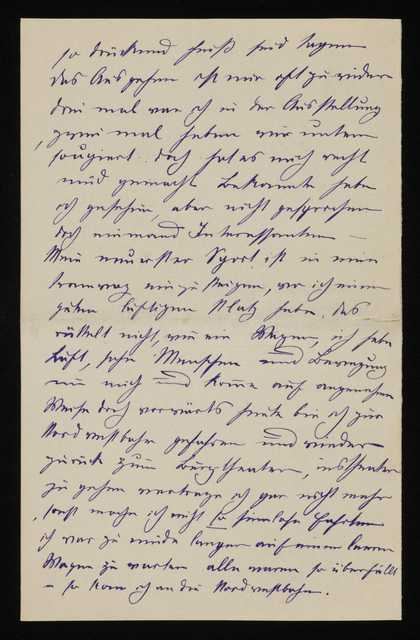 so drückend heiß seid Tagen
das Ausgehen ist mir oft zu wider
drei mal war ich in der Ausstellung
, zwei mal haben wir unten
soupiert. doch hat es mich recht
müd gemacht Bekannte habe
ich gesehen, aber nicht gesprochen
doch niemand Interessanten —
Mein neuester Sport ist in eine
tramway einzusteigen, wo ich einen
guten luftigen Platz habe, das
rüttelt nicht, wie ein Wagen, ich habe
Luft, sehe Menschen und Bewegung
um mich und komme auf angenehme
Weise doch vorwärts heute bin ich zur
Nordwestbahn gefahren und wieder
zurück zum Burgtheater, ins Theater
zu gehen vertrage ich gar nicht mehr
, sonst mache ich nicht so sinnlose Fahrten
ich war zu müde länger auf einen leeren
Wagen zu warten alle waren so überfüllt
– so kam ich an die Nordwestbahn.